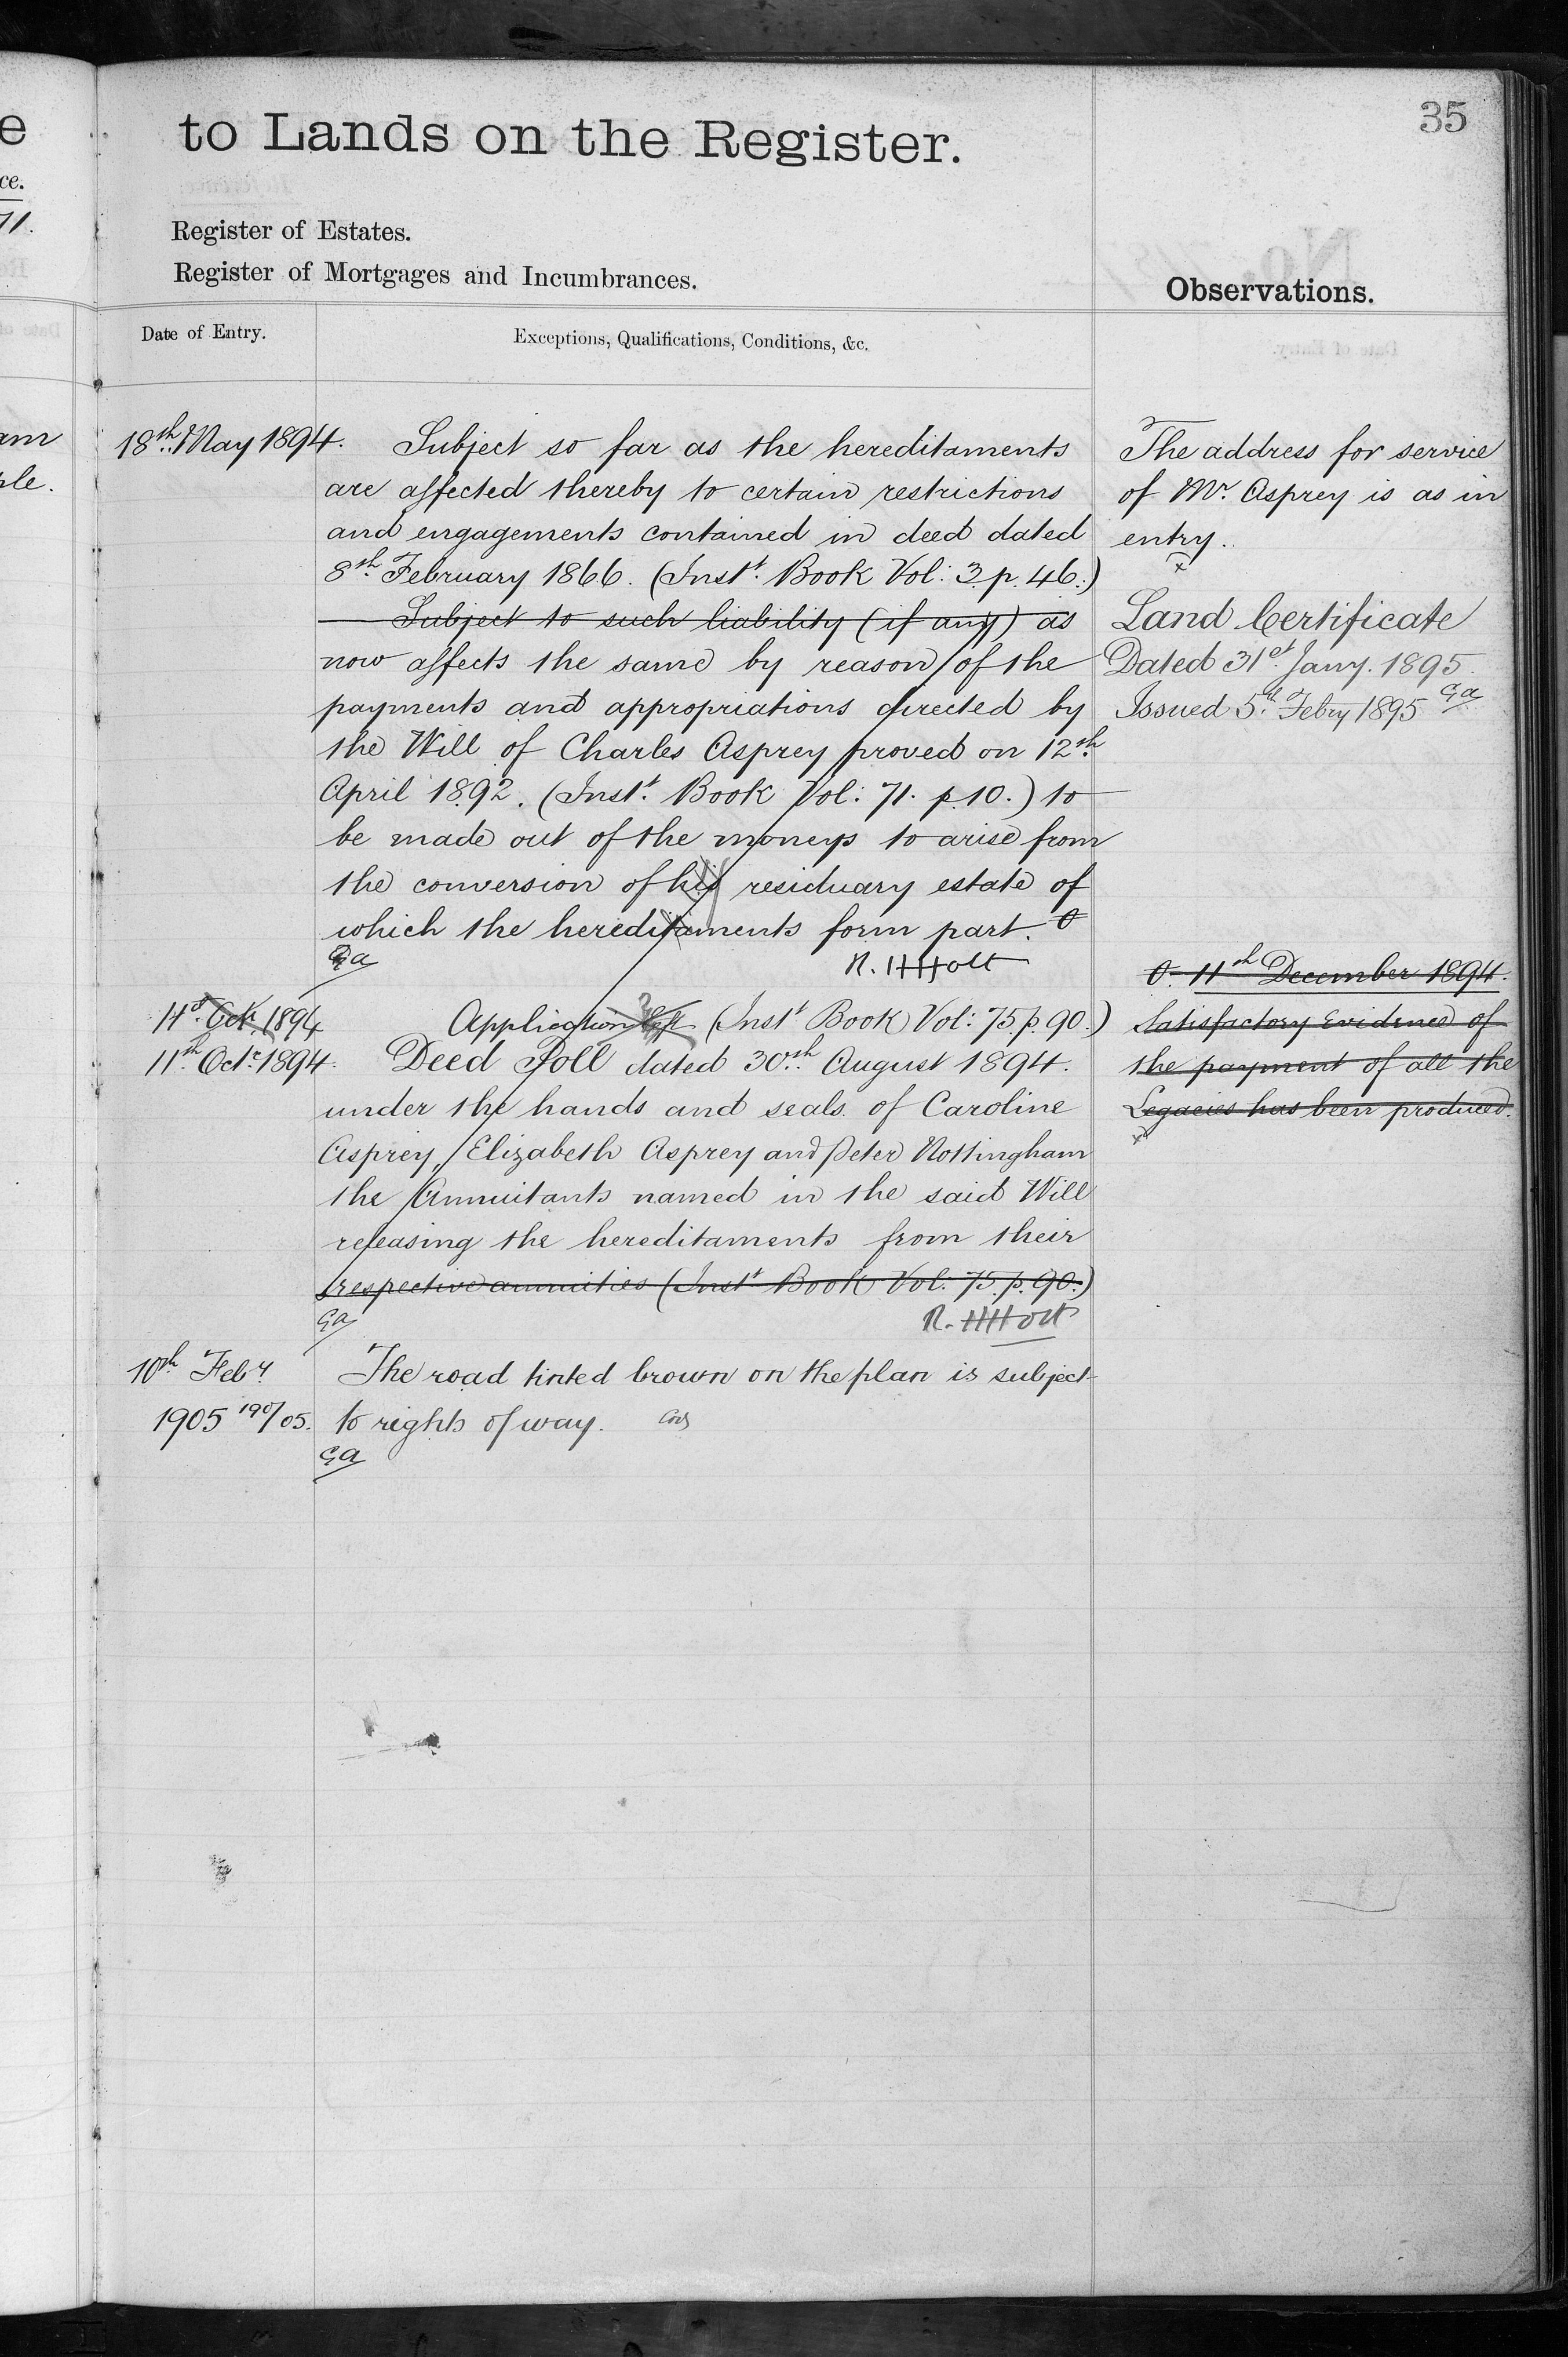 35
to Lands on the Register.
Register of Estates.
Register of Mortgages and Incumbrances.
Observations.
Date of Entry.
Exceptions, Qualifications, Conditions, &c.
18th May 1894.
Subject so far as the hereditaments
are affected thereby to certain restrictions
and engagements contained in deed dated
8th February 1866. (Instt. Book Vol: 3. p. 46.)
Subject to such liability (if any) as
now affects the same by reason of the
payments and appropriations directed by
the Will of Charles Asprey proved on 12th
April 1892. (Instt. Book Vol: 71. p. 10.) to
be made out of the moneys to arise from
the conversion of his residuary estate of
which the hereditaments form part.
Ga
R. HHolt
Octr. 1894
Application left (Instt Book Vol: 75. p. 90.)
11th Octr. 1894.
Deed Poll dated 30th August 1894.
under the hands and seals of Caroline
Asprey, Elizabeth Asprey and Peter Nottingham
the Annuitants named in the said Will
releasing the hereditaments from their
respective annuities (Instt Book Vol: 75. p. 90.)
Ga
R. HHolt
10th Feby
1905 190/05.
The road tinted brown on the plan is subject
to rights of way.
Ga
The address for service
of Mr. Asprey is as in
entry.
Land Certificate
Dated 31st Jany. 1895
Issued 5th Febry 1895 Ga
11th December 1894.
Satisfactory Evidence of
the payment of all the
Legacies has been produced.